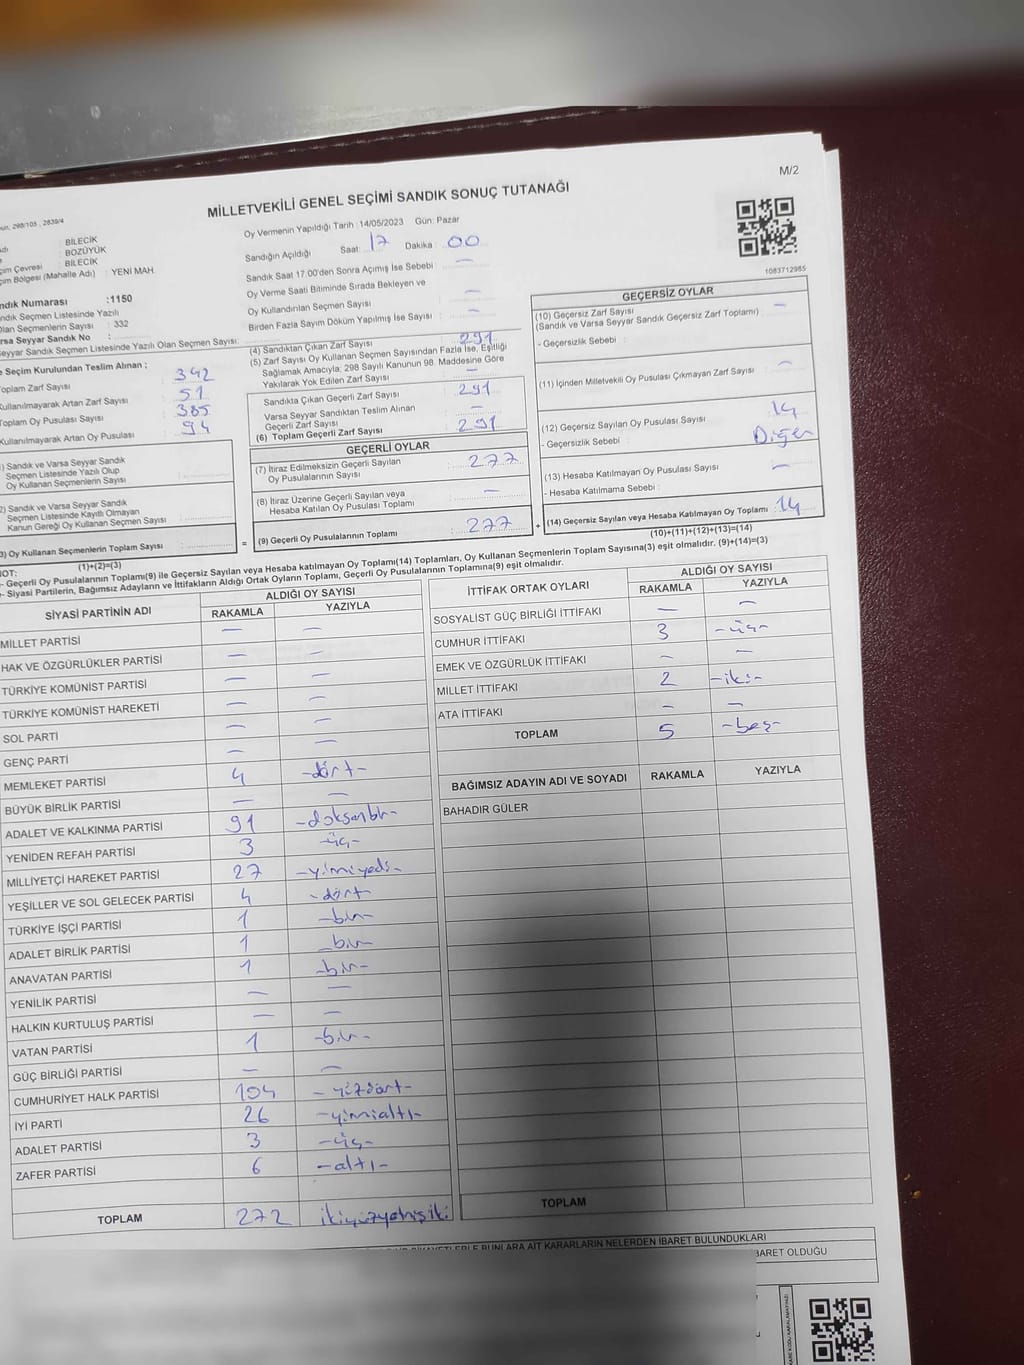 M/2
MİLLETVEKİLİ GENEL SEÇİMİ SANDIK SONUÇ TUTANAĞI
298/105 , 2839/4
BİLECİK
BOZÜYÜK
BİLECİK
(Mahalle Adı) : YENİ MAH.
Numarası :1150
Sandık Seçmen Listesinde Yazılı
Olan Seçmenlerin Sayısı : 332
Seyyar Sandık No :
Seyyar Sandık Seçmen Listesinde Yazılı Olan Seçmen Sayısı.
Seçim Kurulundan Teslim Alınan ;
Toplam Zarf Sayısı 342
Kullanılmayarak Artan Zarf Sayısı 51
Toplam Oy Pusulası Sayısı 385
Kullanılmayarak Artan Oy Pusulası 94
Sandık ve Varsa Seyyar Sandık
Seçmen Listesinde Yazılı Olup
Oy Kullanan Seçmenlerin Sayısı :
Sandık ve Varsa Seyyar Sandık
Seçmen Listesinde Kayıtlı Olmayan
Kanun Gereği Oy Kullanan Seçmen Sayısı :
Oy Kullanan Seçmenlerin Toplam Sayısı :
(1)+(2)=(3)
Oy Vermenin Yapıldığı Tarih : 14/05/2023 Gün: Pazar
Sandığın Açıldığı Saat: 17 Dakika : 00
Sandık Saat 17:00'den Sonra Açımış İse Sebebi : —
Oy Verme Saati Bitiminde Sırada Bekleyen ve
Oy Kullandırılan Seçmen Sayısı : —
Birden Fazla Sayım Döküm Yapılmış İse Sayısı : —
(4) Sandıktan Çıkan Zarf Sayısı : 291
(5) Zarf Sayısı Oy Kullanan Seçmen Sayısından Fazla İse, Eşitliği
Sağlamak Amacıyla; 298 Sayılı Kanunun 98. Maddesine Göre
Yakılarak Yok Edilen Zarf Sayısı : —
Sandıkta Çıkan Geçerli Zarf Sayısı : 291
Varsa Seyyar Sandıktan Teslim Alınan
Geçerli Zarf Sayısı : —
(6) Toplam Geçerli Zarf Sayısı : 291
GEÇERLİ OYLAR
(7) İtiraz Edilmeksizin Geçerli Sayılan
Oy Pusulalarının Sayısı : 277
(8) İtiraz Üzerine Geçerli Sayılan veya
Hesaba Katılan Oy Pusulası Toplamı : —
= (9) Geçerli Oy Pusulalarının Toplamı : 277
1083712985
GEÇERSİZ OYLAR
(10) Geçersiz Zarf Sayısı : —
(Sandık ve Varsa Seyyar Sandık Geçersiz Zarf Toplamı)
- Geçersizlik Sebebi :
(11) İçinden Milletvekili Oy Pusulası Çıkmayan Zarf Sayısı : —
(12) Geçersiz Sayılan Oy Pusulası Sayısı : 14
- Geçersizlik Sebebi : Diğer
(13) Hesaba Katılmayan Oy Pusulası Sayısı : —
- Hesaba Katılmama Sebebi :
+ (14) Geçersiz Sayılan veya Hesaba Katılmayan Oy Toplamı : 14
(10)+(11)+(12)+(13)=(14)
NOT:
- Geçerli Oy Pusulalarının Toplamı(9) ile Geçersiz Sayılan veya Hesaba katılmayan Oy Toplamı(14) Toplamları, Oy Kullanan Seçmenlerin Toplam Sayısına(3) eşit olmalıdır. (9)+(14)=(3)
- Siyasi Partilerin, Bağımsız Adayların ve İttifakların Aldığı Ortak Oyların Toplamı, Geçerli Oy Pusulalarının Toplamına(9) eşit olmalıdır.
SİYASİ PARTİNİN ADI ALDIĞI OY SAYISI
RAKAMLA YAZIYLA
MİLLET PARTİSİ — —
HAK VE ÖZGÜRLÜKLER PARTİSİ — —
TÜRKİYE KOMÜNİST PARTİSİ — —
TÜRKİYE KOMÜNİST HAREKETİ — —
SOL PARTİ — —
GENÇ PARTİ — —
MEMLEKET PARTİSİ 4 -dört-
BÜYÜK BİRLİK PARTİSİ — —
ADALET VE KALKINMA PARTİSİ 91 -doksanbir-
YENİDEN REFAH PARTİSİ 3 -üç-
MİLLİYETÇİ HAREKET PARTİSİ 27 -yirmiyedi-
YEŞİLLER VE SOL GELECEK PARTİSİ 4 -dört-
TÜRKİYE İŞÇİ PARTİSİ 1 -bir-
ADALET BİRLİK PARTİSİ 1 -bir-
ANAVATAN PARTİSİ 1 -bir-
YENİLİK PARTİSİ — —
HALKIN KURTULUŞ PARTİSİ — —
VATAN PARTİSİ 1 -bir-
GÜÇ BİRLİĞİ PARTİSİ — —
CUMHURİYET HALK PARTİSİ 104 -yüzdört-
İYİ PARTİ 26 -yirmialtı-
ADALET PARTİSİ 3 -üç-
ZAFER PARTİSİ 6 -altı-
TOPLAM 272 ikiyüzyetmişiki
İTTİFAK ORTAK OYLARI ALDIĞI OY SAYISI
RAKAMLA YAZIYLA
SOSYALİST GÜÇ BİRLİĞİ İTTİFAKI — —
CUMHUR İTTİFAKI 3 -üç-
EMEK VE ÖZGÜRLÜK İTTİFAKI — —
MİLLET İTTİFAKI 2 -iki-
ATA İTTİFAKI — —
TOPLAM 5 -beş-
BAĞIMSIZ ADAYIN ADI VE SOYADI RAKAMLA YAZIYLA
BAHADIR GÜLER
TOPLAM
BUNLARA AİT KARARLARIN NELERDEN İBARET BULUNDUKLARI
İBARET OLDUĞU